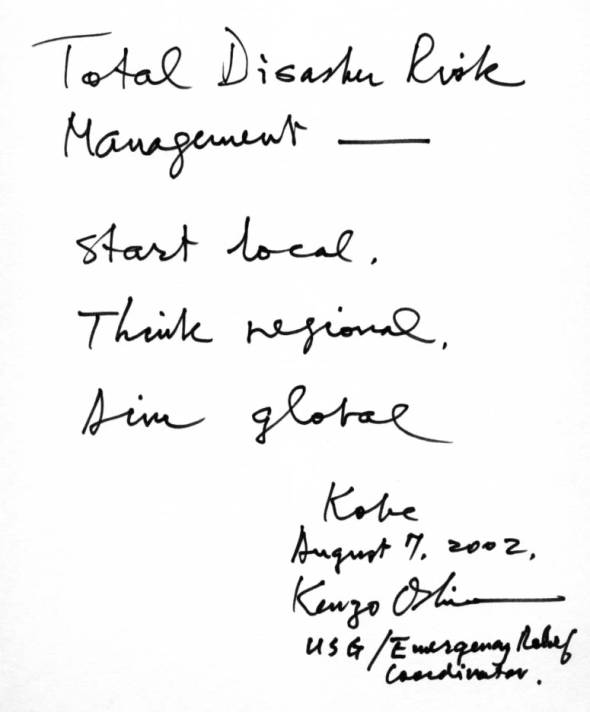 Total Disaster Risk
Management —
Start local,
Think regional,
Aim global
Kobe
August 7, 2002,
Kenzo Oshi
USG/Emergency Relief
Coordinator.